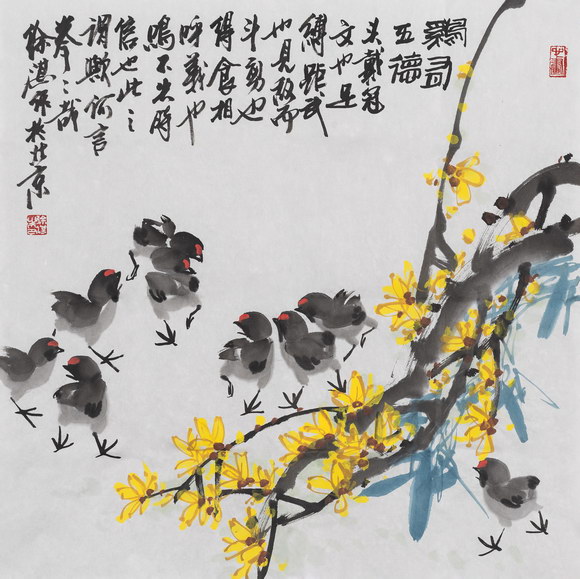 鷄有
五德
头戴冠
文也足
縛距武
也見敌而
斗勇也
得食相
呼義也
鳴不失时
信也此之
謂欤何言
拳々哉
徐湛作於北京